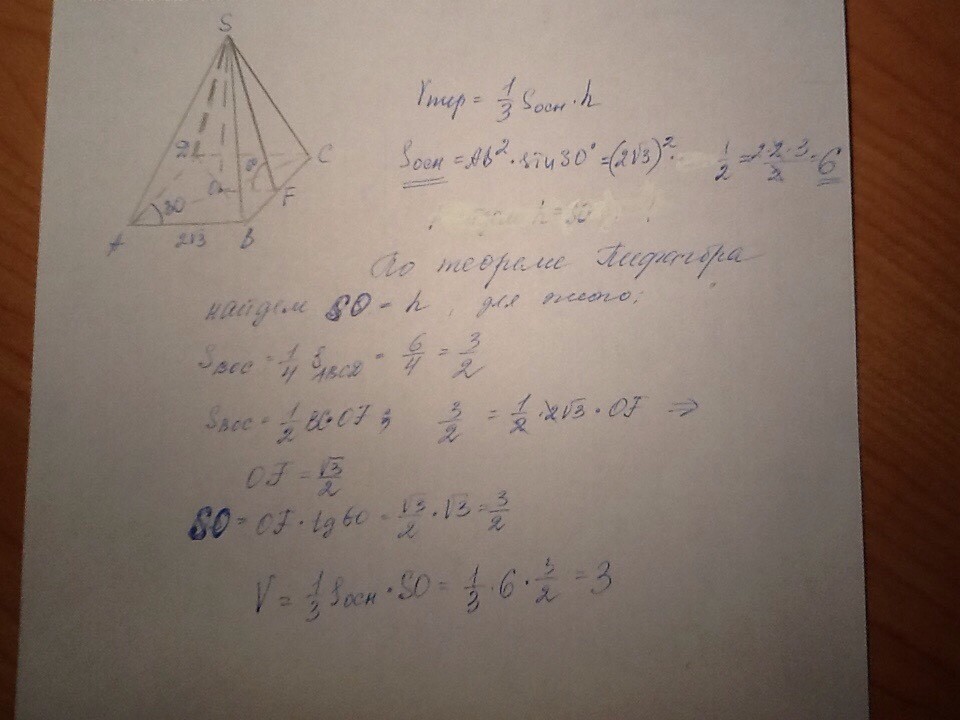 S
Vпир = 1/3 Sосн · h
Sосн = AB² · sin 30° = (2√3)² · 1/2 = 2·2·3/2 = 6
D C
O F
A 30 B
2√3
h = SO
По теореме Пифагора
найдем SO = h, для этого:
SBOC = 1/4 SABCD = 6/4 = 3/2
SBOC = 1/2 BC · OF; 3/2 = 1/2 · 2√3 · OF ⇒
OF = √3/2
SO = OF · tg 60 = √3/2 · √3 = 3/2
V = 1/3 Sосн · SO = 1/3 · 6 · 3/2 = 3